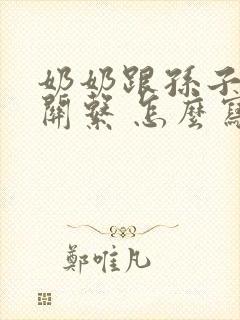 奶奶跟孫子
關繫 怎麼寫
鄭唯凡